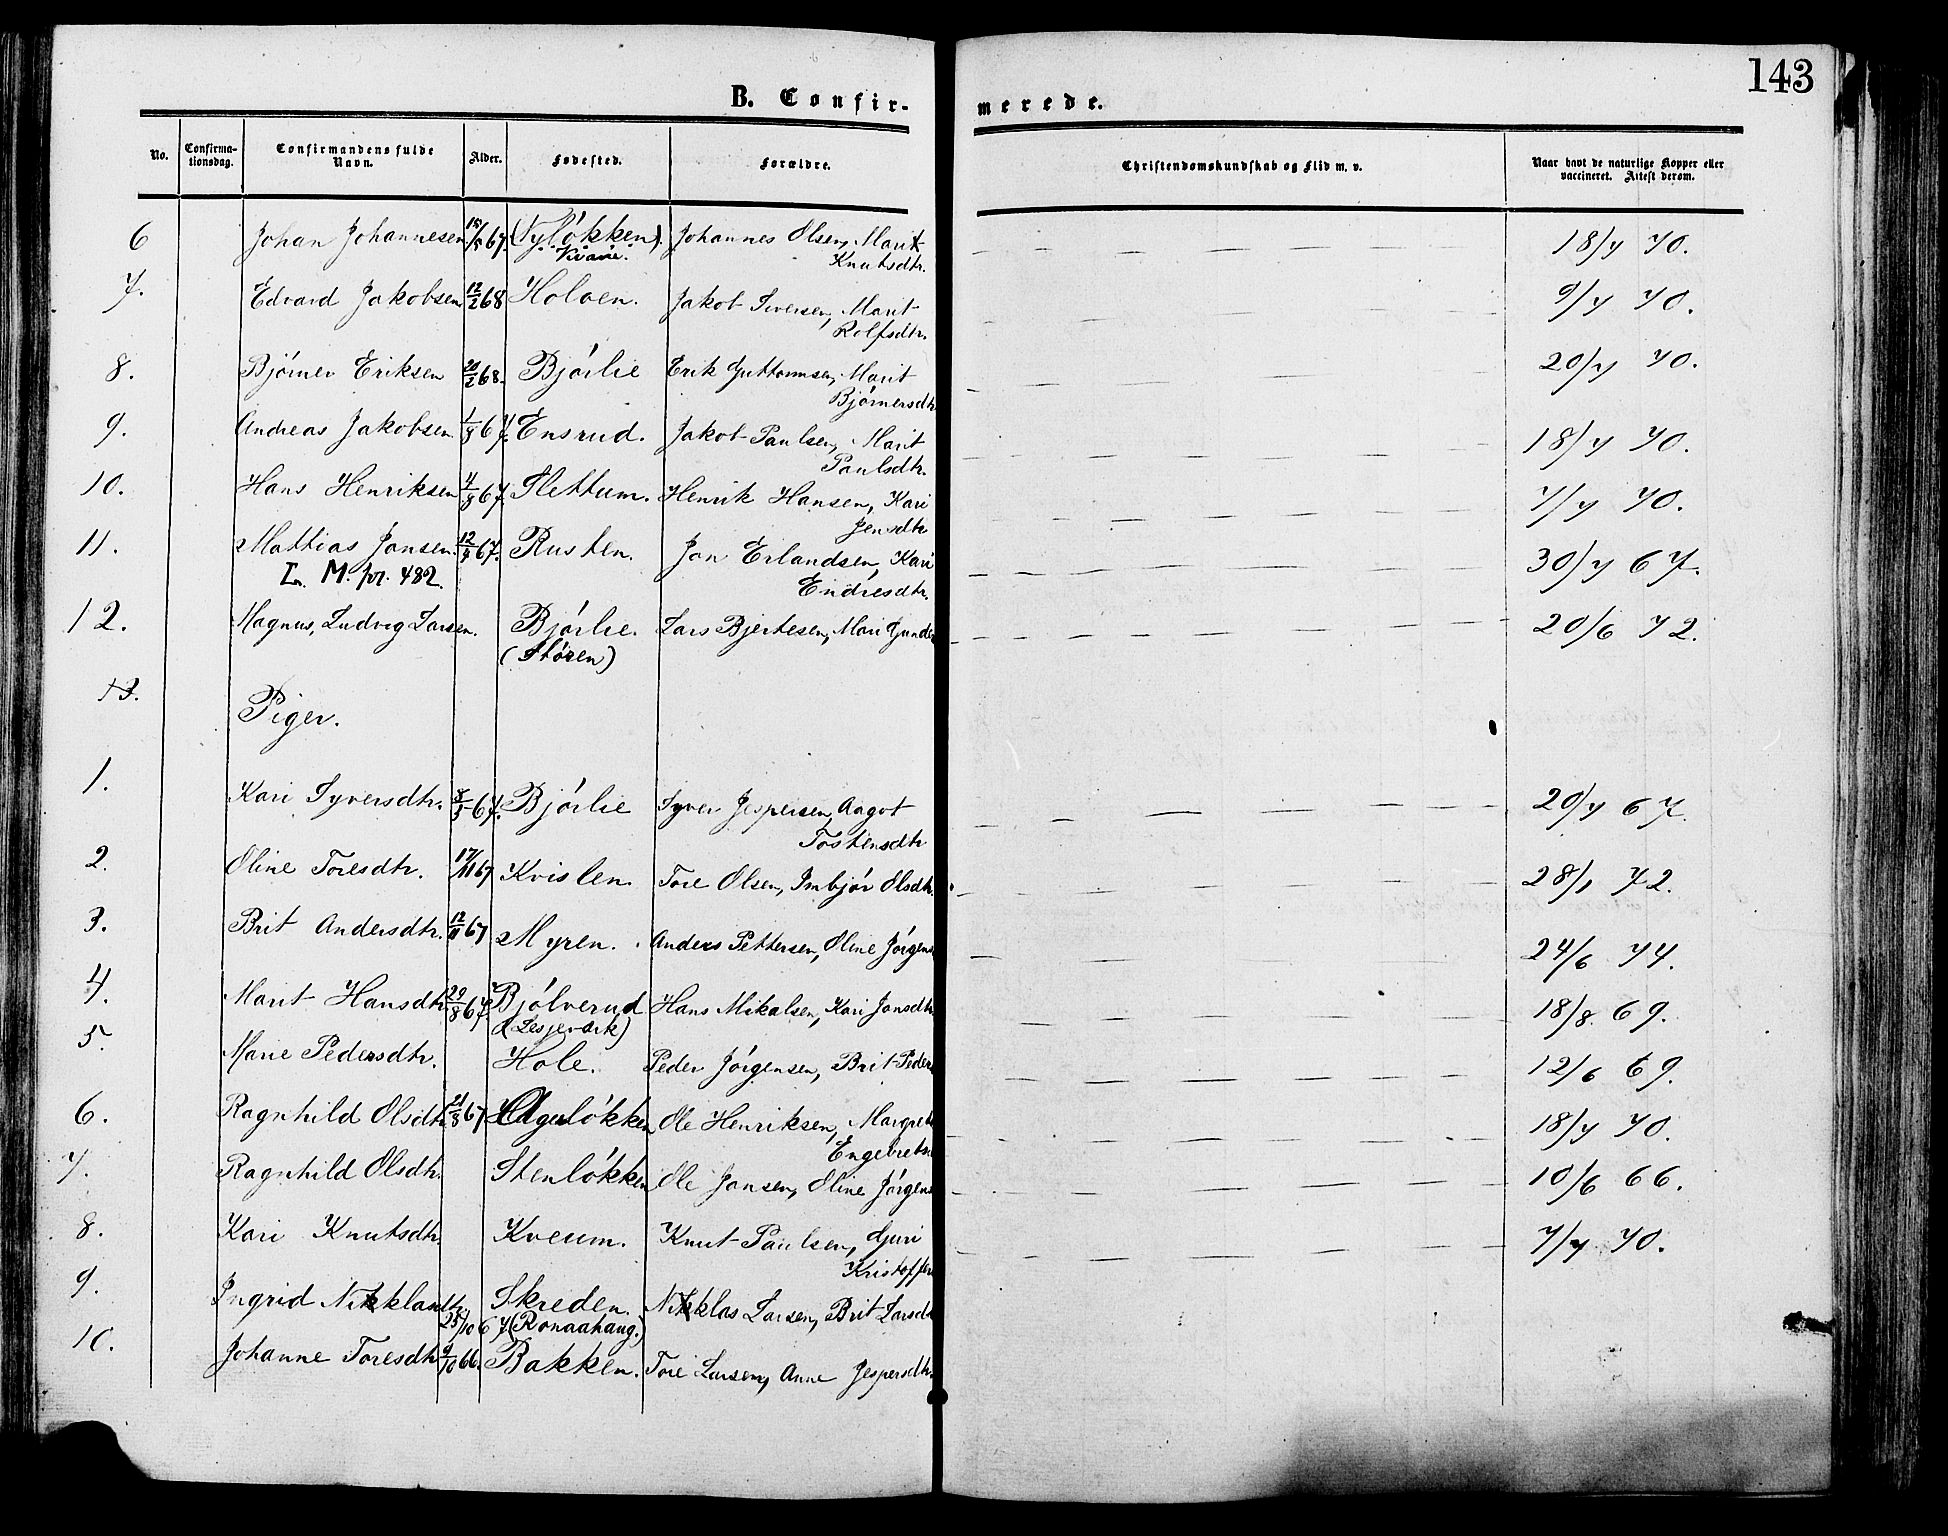 143
B. Confirmerede.
No. Confirmationsdag. Confirmandens fulde Navn. Alder. Fødested. Forældre. Christendomskundskab og Flid m. v. Naar havt de naturlige Kopper eller vaccineret. Attest derom.
6 Johan Johannesen 67. (Nyløkken). Johannes Olsen, Marit 18/7 70.
Kvame. Knutsdtr.
7. Edvard Jakobsen 12/2 68 Holoen. Jakob Iversen, Marit 9/7 70.
Rolfsdtr.
8. Bjørner Eriksen 20/2 68. Bjørlie Erik Guttormsen, Marit 20/7 70.
Bjørnersdtr
9. Andreas Jakobsen 67. Ensrud. Jakob Paulsen, Marit 18/7 70.
Paulsdtr.
10. Hans Henriksen 67. Slettum. Henrik Hansen, Kari 7/7 70.
Jensdtr
11. Mattias Jonsen. 67. Rusten. Jon Erlandsen, Kari 30/7 67.
M. 482. Endresdtr.
12. Magnus, Ludvig Larsen. Bjørlie. Lars Bjertesen, Mari 20/6 72.
(Støren)
13.
Piger.
1. Kari Syversdtr. 67. Bjørlie Syver Jespersen, Aagot 20/7 67.
Tostensdtr
2. Oline Toresdtr. 17/11 67 Kvislen. Tore Olsen, Imbjør Olsdtr. 28/1 72.
3. Brit Andersdtr. 12/11 67 Myren. Anders Pettersen, Oline Jørgens 24/6 74.
4. Marit Hansdtr 29/8 67 Bjølverud Hans Mikalsen, Kari Jonsdtr 18/8. 69.
(Lesjeværk)
5. Marie Pedersdtr. Hole. Peder Jørgensen, Brit Peders 12/6 69.
6. Ragnhild Olsdtr 21/8 67 Ole Henriksen, Margrete 18/7 70.
Engebrets
7. Ragnhild Olsdtr. Stenløkken Ole Jonsen, Oline Jørgens 10/6 66.
8. Kari Knutsdtr. Kveum. Knut Paulsen, Guri 7/7 70.
Kristoffers
9. Ingrid Skreden. Niklas Larsen, Brit Larsdtr
25/10 67 (Ronaahaug.)
10. Johanne Toresdtr 9/10 66. Bakken. Tore Larsen, Anne Jespersdtr.